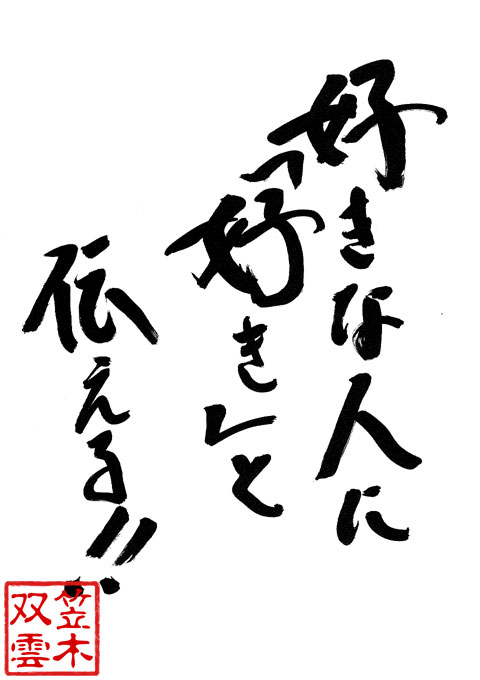 好きな人に
「好き」と
伝える!!
笠木
双雲